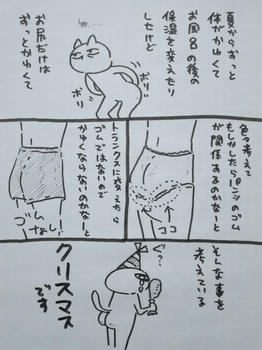 夏からずっと
体がかゆくて
お風呂の後の
保湿を変えたり
したけど
お尻だけは
ずっとかゆくて
ボリ
ボリ
色々考えて
もしかしたらパンツのゴム
が関係するのかなーと
ココ
トランクスに変えたら
ゴムではないので
かゆくならないのかなーと
ゴム
なし!
そんな事を
考えている
ぐ?
クリスマス
です